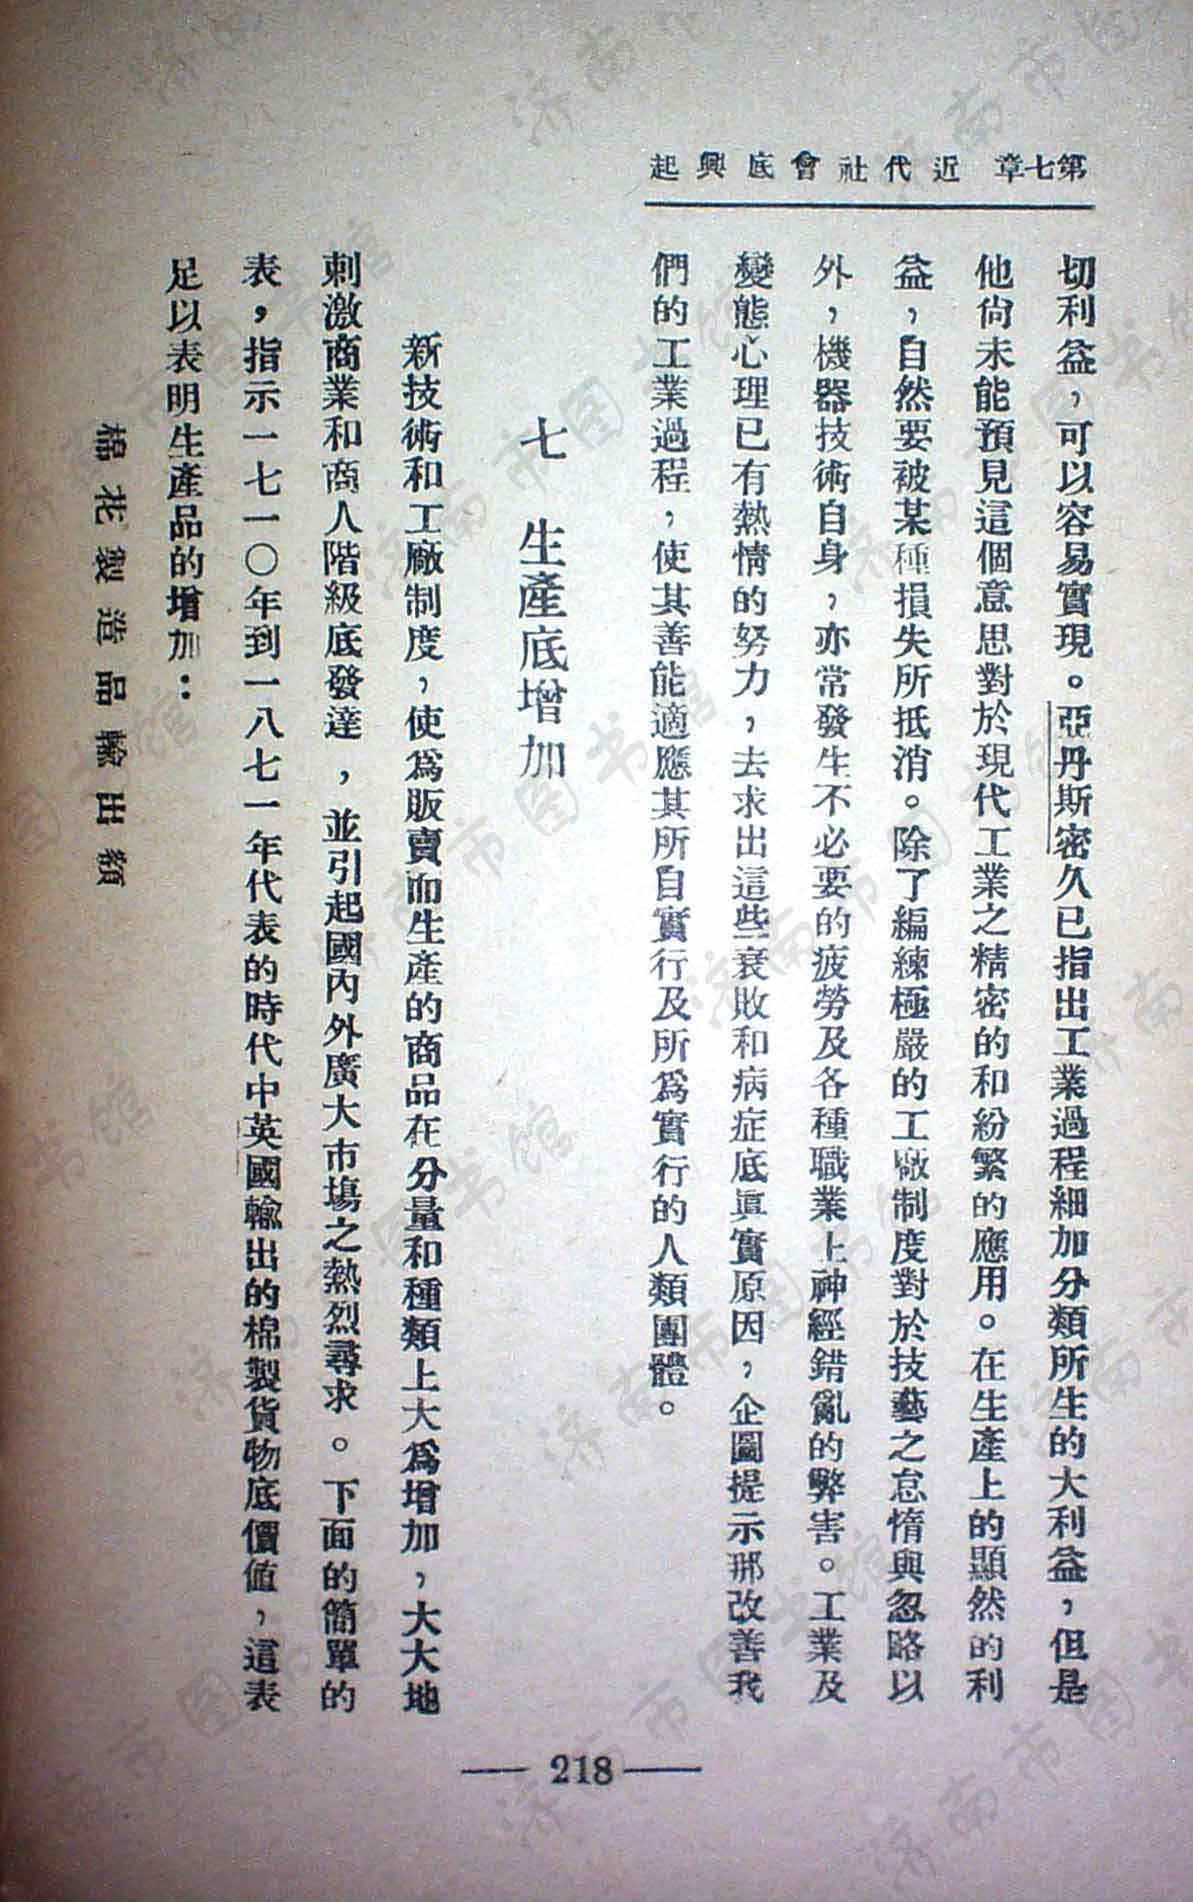 第七章 近代社會底興起
切利益，可以容易實現。亞丹斯密久已指出工業過程細加分類所生的大利益，但是
他尙未能預見這個意思對於現代工業之精密的和紛繁的應用。在生產上的顯然的利
益，自然要被某種損失所抵消。除了編練極嚴的工廠制度對於技藝之怠惰與忽略以
外，機器技術自身，亦常發生不必要的疲勞及各種職業上神經錯亂的弊害。工業及
變態心理已有熱情的努力，去求出這些衰敗和病症底眞實原因，企圖提示那改善我
們的工業過程，使其善能適應其所自實行及所爲實行的人類團體。
七 生產底增加
新技術和工廠制度，使爲販賣而生產的商品在分量和種類上大爲增加，大大地
刺激商業和商人階級底發達，並引起國內外廣大市塲之熱烈尋求。下面的簡單的
表，指示一七一〇年到一八七一年代表的時代中英國輸出的棉製貨物底價値，這表
足以表明生產品的增加：
棉花製造品輸出額
— 218 —
济南市图书馆